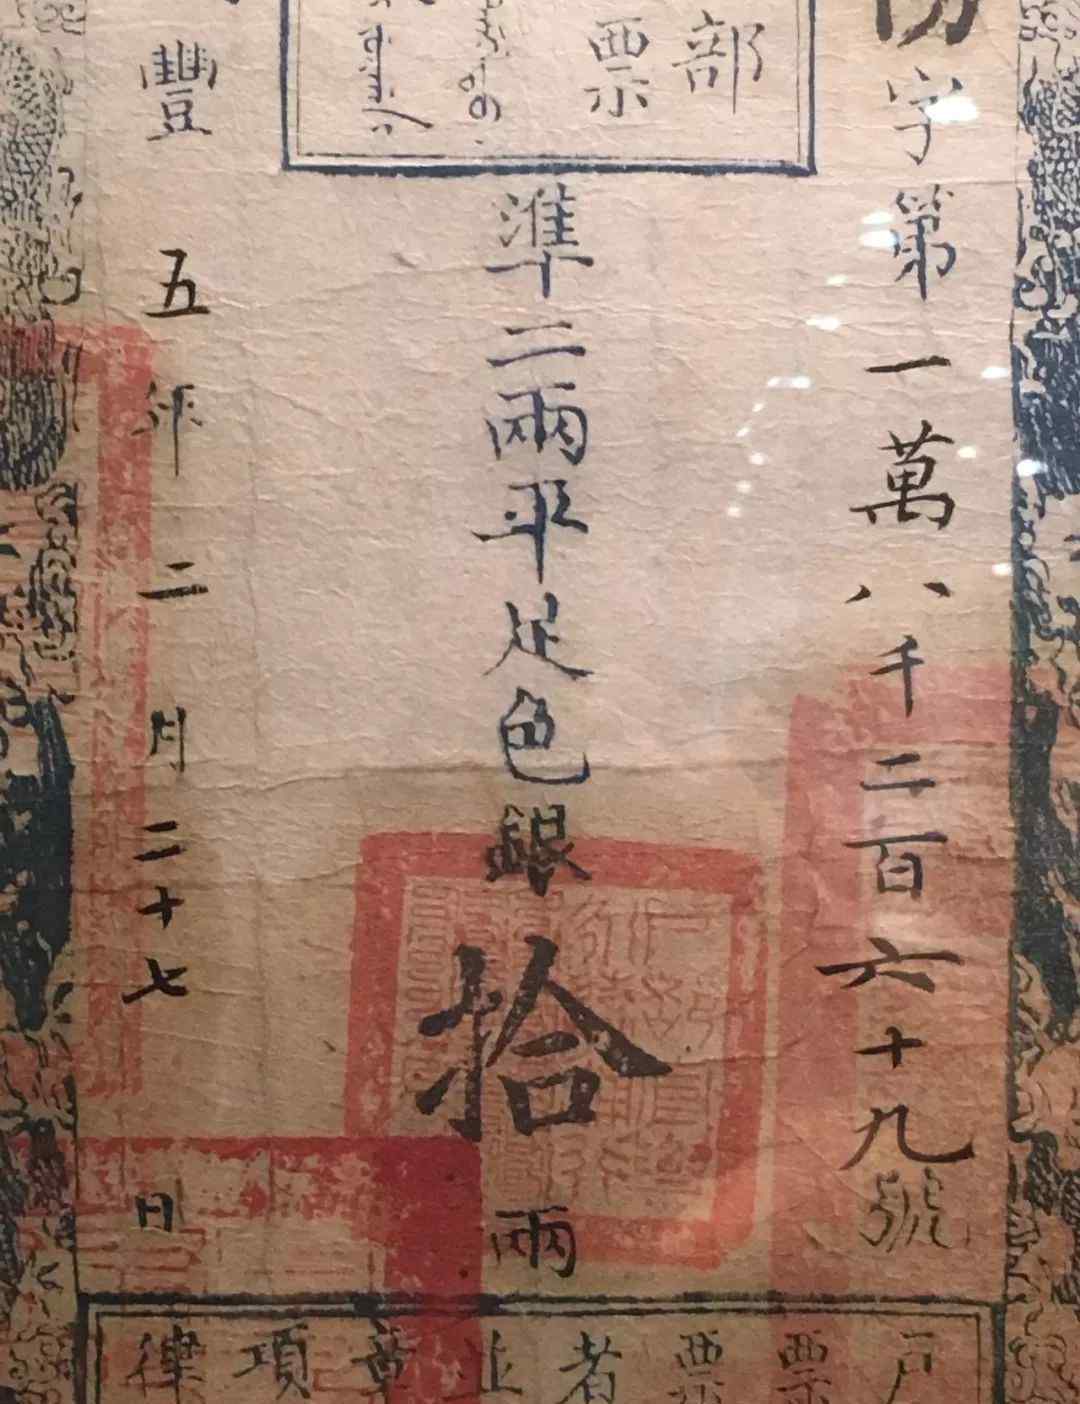 字第一萬八千二百六十九號
部
票
準二兩平足色銀拾兩
豐五年二月二十七日
戶
票
票
者
並
章
項
律